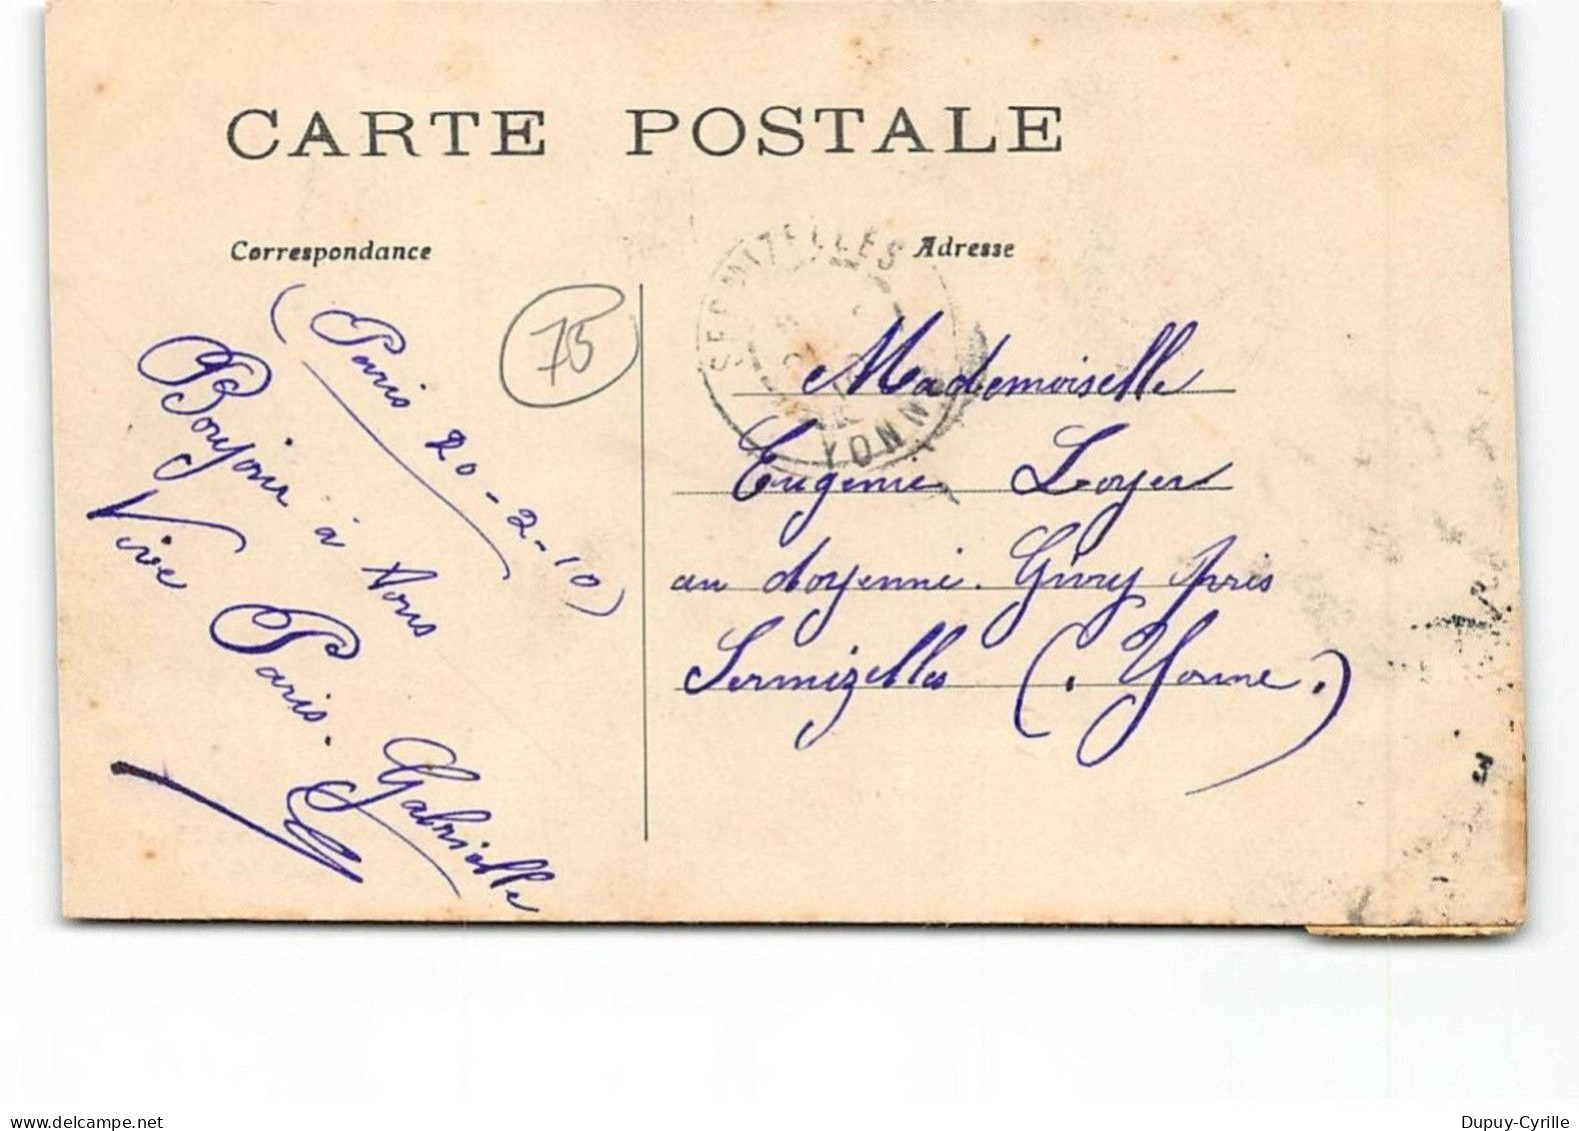 CARTE POSTALE
Correspondance
Adresse
SERMIZELLES
YONNE
75
(Paris 20-2-10)
Bonjour à tous
Vive Paris.
Gabrielle
Mademoiselle
Eugenie Loyer
au doyenné. Givry près
Sermizelles (. Yonne.)
www.delcampe.net
Dupuy-Cyrille